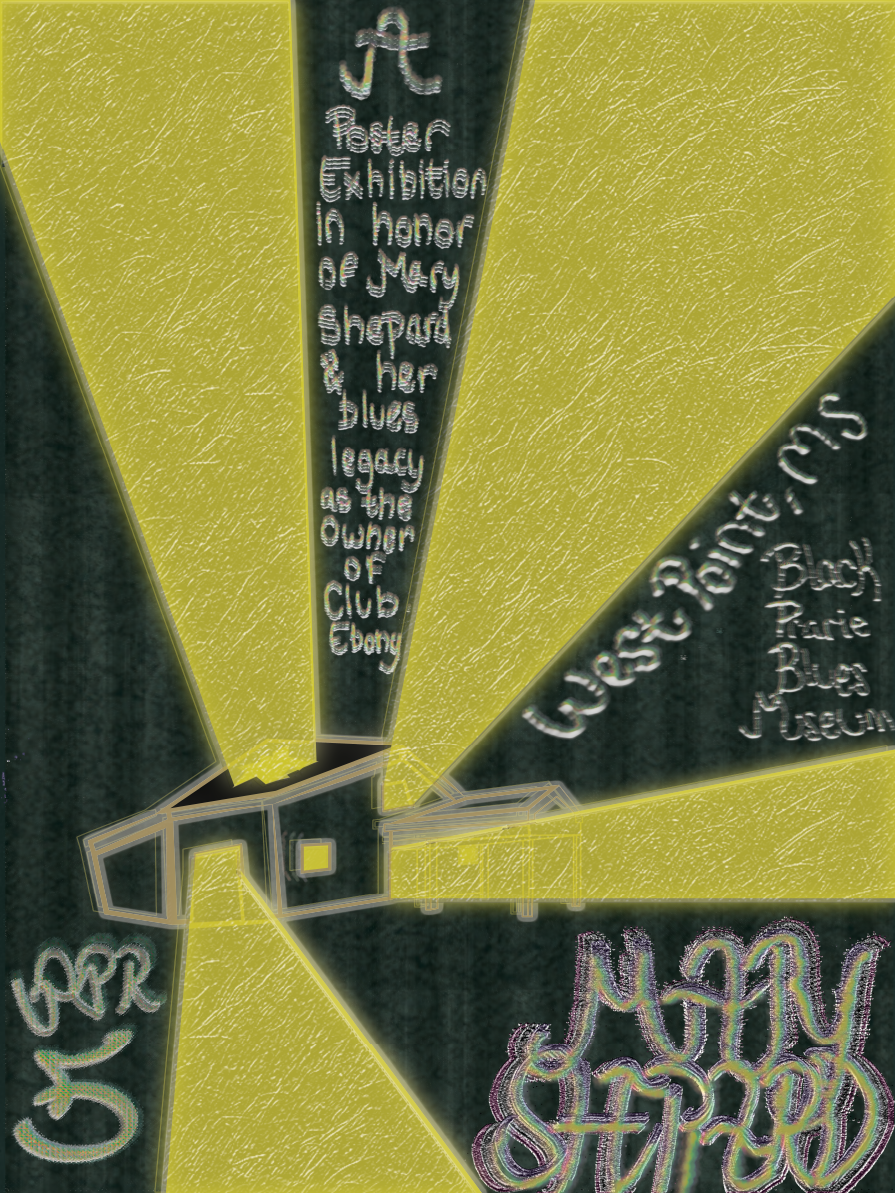 A
Poster
Exhibition
in honor
of Mary
Shepard
& her
blues
legacy
as the
Owner
of
Club
Ebony
West Point, MS
Black
Prarie
Blues
Museum
APR
MARY
SHEPARD